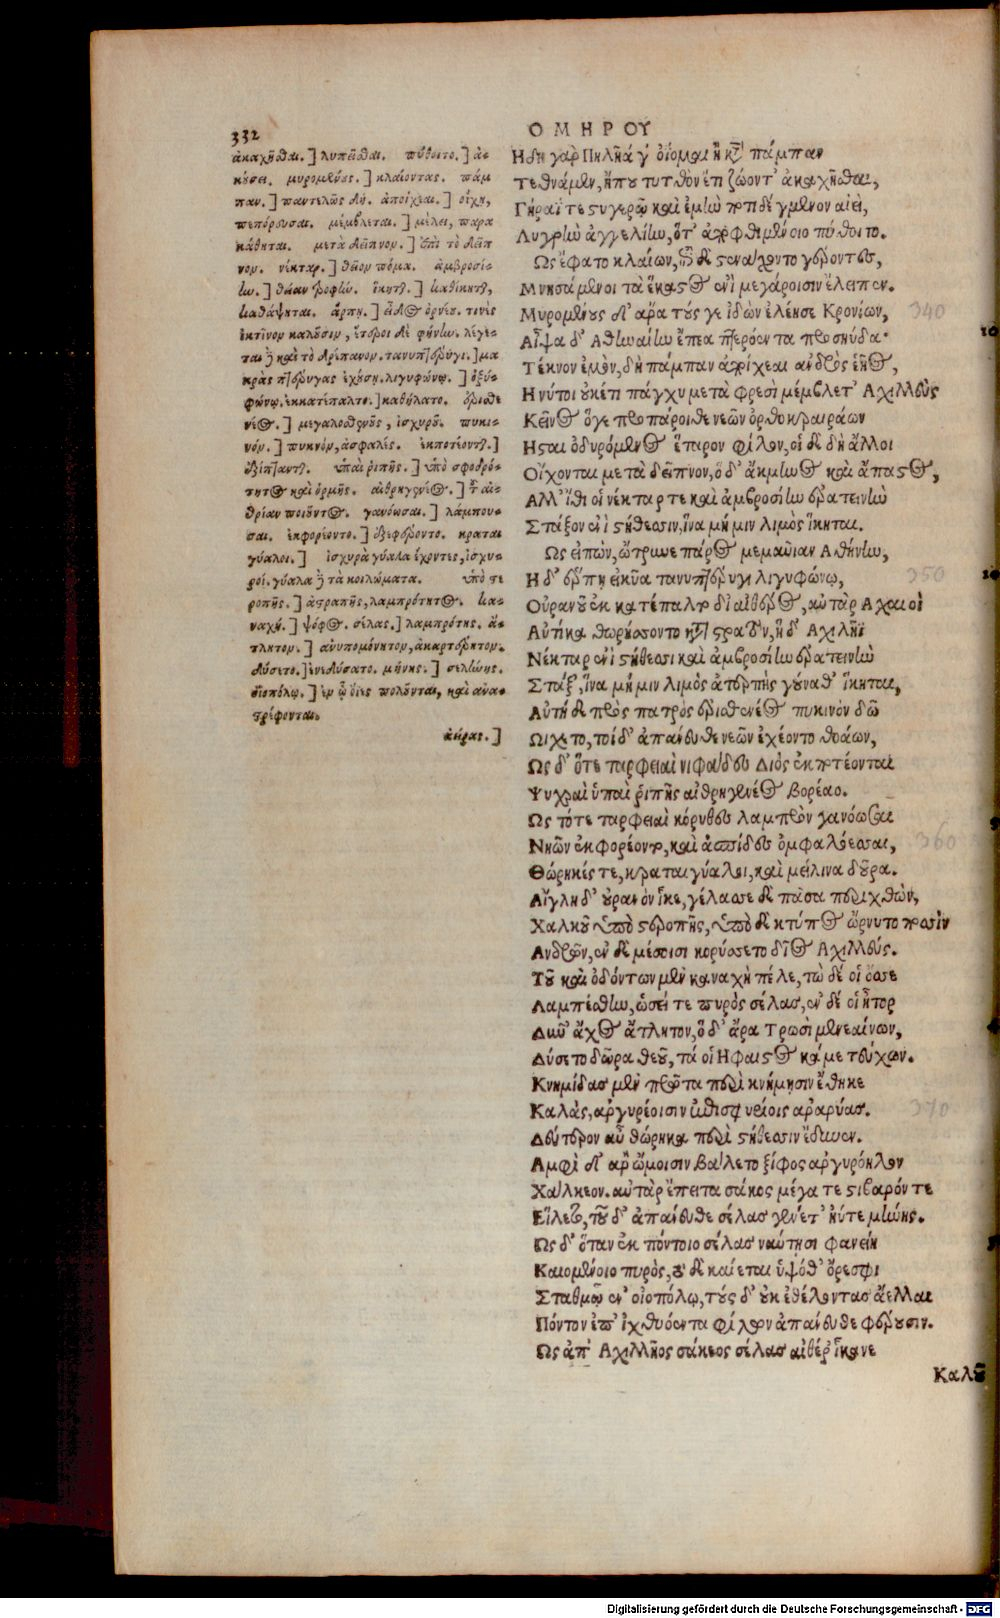 332
ΟΜΗΡΟΥ
ἀκαχῆσθαι.] λυπεῖσθαι. πύθοιτο.] ἀ-
κούσει. μυρομένους.] κλαίοντας. πάμ
παν.] παντελῶς δή. ἀποίχεαι.] οἴχῃ,
πεπόρευσαι. μέμβλεται.] μέλει, παρα
κάθηται. μετὰ δεῖπνον.] ἐπὶ τὸ δεῖπ
νον. νέκταρ.] θεῖον πόμα. ἀμβροσί-
ην.] θείαν τροφήν. ἵκηται.] καθίκηται,
καθάψηται. ἅρπη.] εἶδος ὀρνέου. τινὲς
ἰκτῖνον καλοῦσιν, ἕτεροι δὲ φήνην. λέγε-
ται δὲ καὶ τὸ δρέπανον. τανυπτέρυγι.] μα
κρὰς πτέρυγας ἐχούσῃ. λιγυφώνῳ.] ὀξυ-
φώνῳ. ἐκκατέπαλτο.] καθήλατο. ἐρισθε
νέος.] μεγαλοσθενοῦς, ἰσχυροῦ. πυκι-
νόν.] πυκνὸν, ἀσφαλές. ἐκποτέονται.]
ἐξίπτανται. ὑπαὶ ριπῆς.] ὑπὸ σφοδρό-
τητος καὶ ὁρμῆς. αἰθρηγενέος.] τοῦ αἰ-
θρίαν ποιοῦντος. γανόωσαι.] λάμπου-
σαι. ἐκφορέοντο.] ἐξεφέροντο. κραται
γύαλοι.] ἰσχυρὰ γύαλα ἔχοντες, ἰσχυ-
ροί. γύαλα δὲ τὰ κοιλώματα. ὑπὸ στε
ροπῆς.] ἀστραπῆς, λαμπρότητος. κα-
ναχή.] ψόφος. σέλας.] λαμπρότης. ἄ-
τλητον.] ἀνυπομόνητον, ἀκαρτέρητον.
δύσετο.] ἐνεδύσατο. μήνης.] σελήνης.
οἰοπόλῳ.] ἐν ᾧ ὄιες πολοῦνται, καὶ ἀνα-
στρέφονται.
ἀείρας.]
Ηδη γὰρ Πηλῆά γ' ὀΐομαι ἢ κατὰ πάμπαν
Τεθνάμεν, ἤπου τυτθὸν ἔτι ζώοντ' ἀκαχῆσθαι,
Γήραΐ τε στυγερῷ καὶ ἐμὴν ποτιδέγμενον αἰεὶ,
Λυγρὴν ἀγγελίην, ὅτ' ἀποφθιμένοιο πύθοιτο.
Ως ἔφατο κλαίων, ἐπὶ δὲ στενάχοντο γέροντες,
Μνησάμενοι τὰ ἕκαστος ἐνὶ μεγάροισιν ἔλειπεν.
Μυρομένους δ' ἄρα τούς γε ἰδὼν ἐλέησε Κρονίων, 340
Αἶψα δ' Αθηναίην ἔπεα πτερόεντα προσηύδα·
Τέκνον ἐμὸν, δὴ πάμπαν ἀποίχεαι ἀνδρὸς ἑῆος,
Η νύ τοι οὐκέτι πάγχυ μετὰ φρεσὶ μέμβλετ' Αχιλλεὺς
Κεῖνος ὅγε προπάροιθε νεῶν ὀρθοκραιράων
Ησται ὀδυρόμενος ἕταρον φίλον, οἱ δὲ δὴ ἄλλοι
Οἴχονται μετὰ δεῖπνον, ὁ δ' ἄκμηνος καὶ ἄπαστος,
Αλλ' ἴθι οἱ νέκταρ τε καὶ ἀμβροσίην ἐρατεινὴν
Στάξον ἐνὶ στήθεσιν, ἵνα μή μιν λιμὸς ἵκηται.
Ως εἰπὼν, ὤτρυνε πάρος μεμαυῖαν Αθήνην,
Η δ' ἅρπῃ εἰκυῖα τανυπτέρυγι λιγυφώνῳ, 350
Οὐρανοῦ ἐκ κατέπαλτο δι' αἰθέρος, αὐτὰρ Αχαιοὶ
Αὐτίκα θωρήσσοντο κατὰ στρατὸν, ἡ δ' Αχιλῆϊ
Νέκταρ ἐνὶ στήθεσσι καὶ ἀμβροσίην ἐρατεινὴν
Στάξ', ἵνα μή μιν λιμὸς ἀτερπὴς γούναθ' ἵκηται,
Αὐτὴ δὲ πρὸς πατρὸς ἐρισθενέος πυκινὸν δῶ
Ωιχετο, τοὶ δ' ἀπάνευθε νεῶν ἐχέοντο θοάων,
Ως δ' ὅτε ταρφειαὶ νιφάδες Διὸς ἐκποτέονται
Ψυχραὶ ὑπαὶ ῥιπῆς αἰθρηγενέος βορέαο.
Ως τότε ταρφειαὶ κόρυθες λαμπρὸν γανόωσαι
Νηῶν ἐκφορέοντο, καὶ ἀσπίδες ὀμφαλόεσσαι, 360
Θώρηκές τε, κραταιγύαλοι, καὶ μείλινα δοῦρα.
Αἴγλη δ' οὐρανὸν ἷκε, γέλασσε δὲ πᾶσα περὶ χθὼν,
Χαλκοῦ ὑπὸ στεροπῆς, ὑπὸ δὲ κτύπος ὤρνυτο ποσὶν
Ανδρῶν, ἐν δὲ μέσοισι κορύσσετο δῖος Αχιλλεύς.
Τοῦ καὶ ὀδόντων μὲν καναχὴ πέλε, τὼ δέ οἱ ὄσσε
Λαμπέσθην, ὡσεί τε πυρὸς σέλας, ἐν δέ οἱ ἦτορ
Δῦν' ἄχος ἄτλητον, ὁ δ' ἄρα Τρωσὶ μενεαίνων,
Δύσετο δῶρα θεοῦ, τά οἱ Ηφαιστος κάμε τεύχων.
Κνημίδας μὲν πρῶτα περὶ κνήμῃσιν ἔθηκε
Καλὰς, ἀργυρέοισιν ἐπισφυρίοις ἀραρυίας. 370
Δεύτερον αὖ θώρηκα περὶ στήθεσσιν ἔδυνεν.
Αμφὶ δ' ἄρ' ὤμοισιν βάλετο ξίφος ἀργυρόηλον
Χάλκεον. αὐτὰρ ἔπειτα σάκος μέγα τε στιβαρόν τε
Εἵλετο, τοῦ δ' ἀπάνευθε σέλας γένετ' ἠΰτε μήνης.
Ως δ' ὅταν ἐκ πόντοιο σέλας ναύτῃσι φανείη
Καιομένοιο πυρὸς, τὸ δὲ καίεται ὑψόθ' ὄρεσφι
Σταθμῷ ἐν οἰοπόλῳ, τοὺς δ' οὐκ ἐθέλοντας ἄελλαι
Πόντον ἐπ' ἰχθυόεντα φίλων ἀπάνευθε φέρουσιν.
Ως ἀπ' Αχιλλῆος σάκεος σέλας αἰθέρ' ἵκανε
Καλοῦ
Digitalisierung gefördert durch die Deutsche Forschungsgemeinschaft - DFG